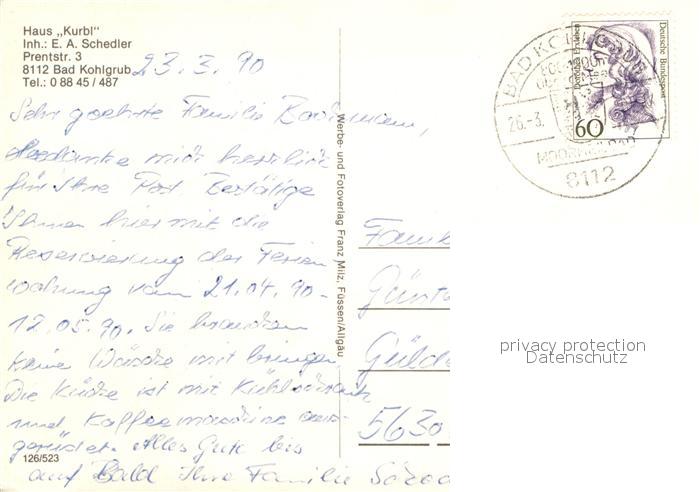 Haus „Kurbl"
Inh.: E. A. Schedler
Prentstr. 3
8112 Bad Kohlgrub
Tel.: 0 88 45 / 487
23.3.90
Sehr geehrte Familie
bedanke mich herzlich
für Ihre Post Bestätige
Ihnen hiermit die
Reservierung der Ferien
wohnung vom 21.04.90-
12.05.90. Sie brauchen
keine Wäsche mit bringen,
Die Küche ist mit Kühlschrank
und Kaffeemaschine aus-
gerüstet. Alles Gute bis
auf Bald Ihre Familie
126/523
Werbe- und Fotoverlag Franz Milz, Füssen/Allgäu
BAD KOHLGRUB
26.-3.
MOORHEILBAD
8112
60
Deutsche Bundespost
Famil
Günt
Gülde
5630
privacy protection
Datenschutz